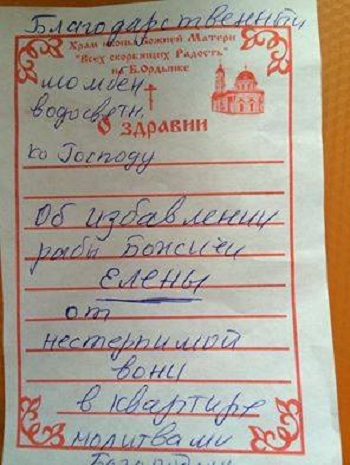 Благодарственный
Храм иконы Божией Матери
"Всех скорбящих Радость"
на Б.Ордынке
молебен
водосветн.
О здравии
ко Господу
Об избавлении
рабы Божией
Елены
от
нестерпимой
вони
в квартире
молитвами